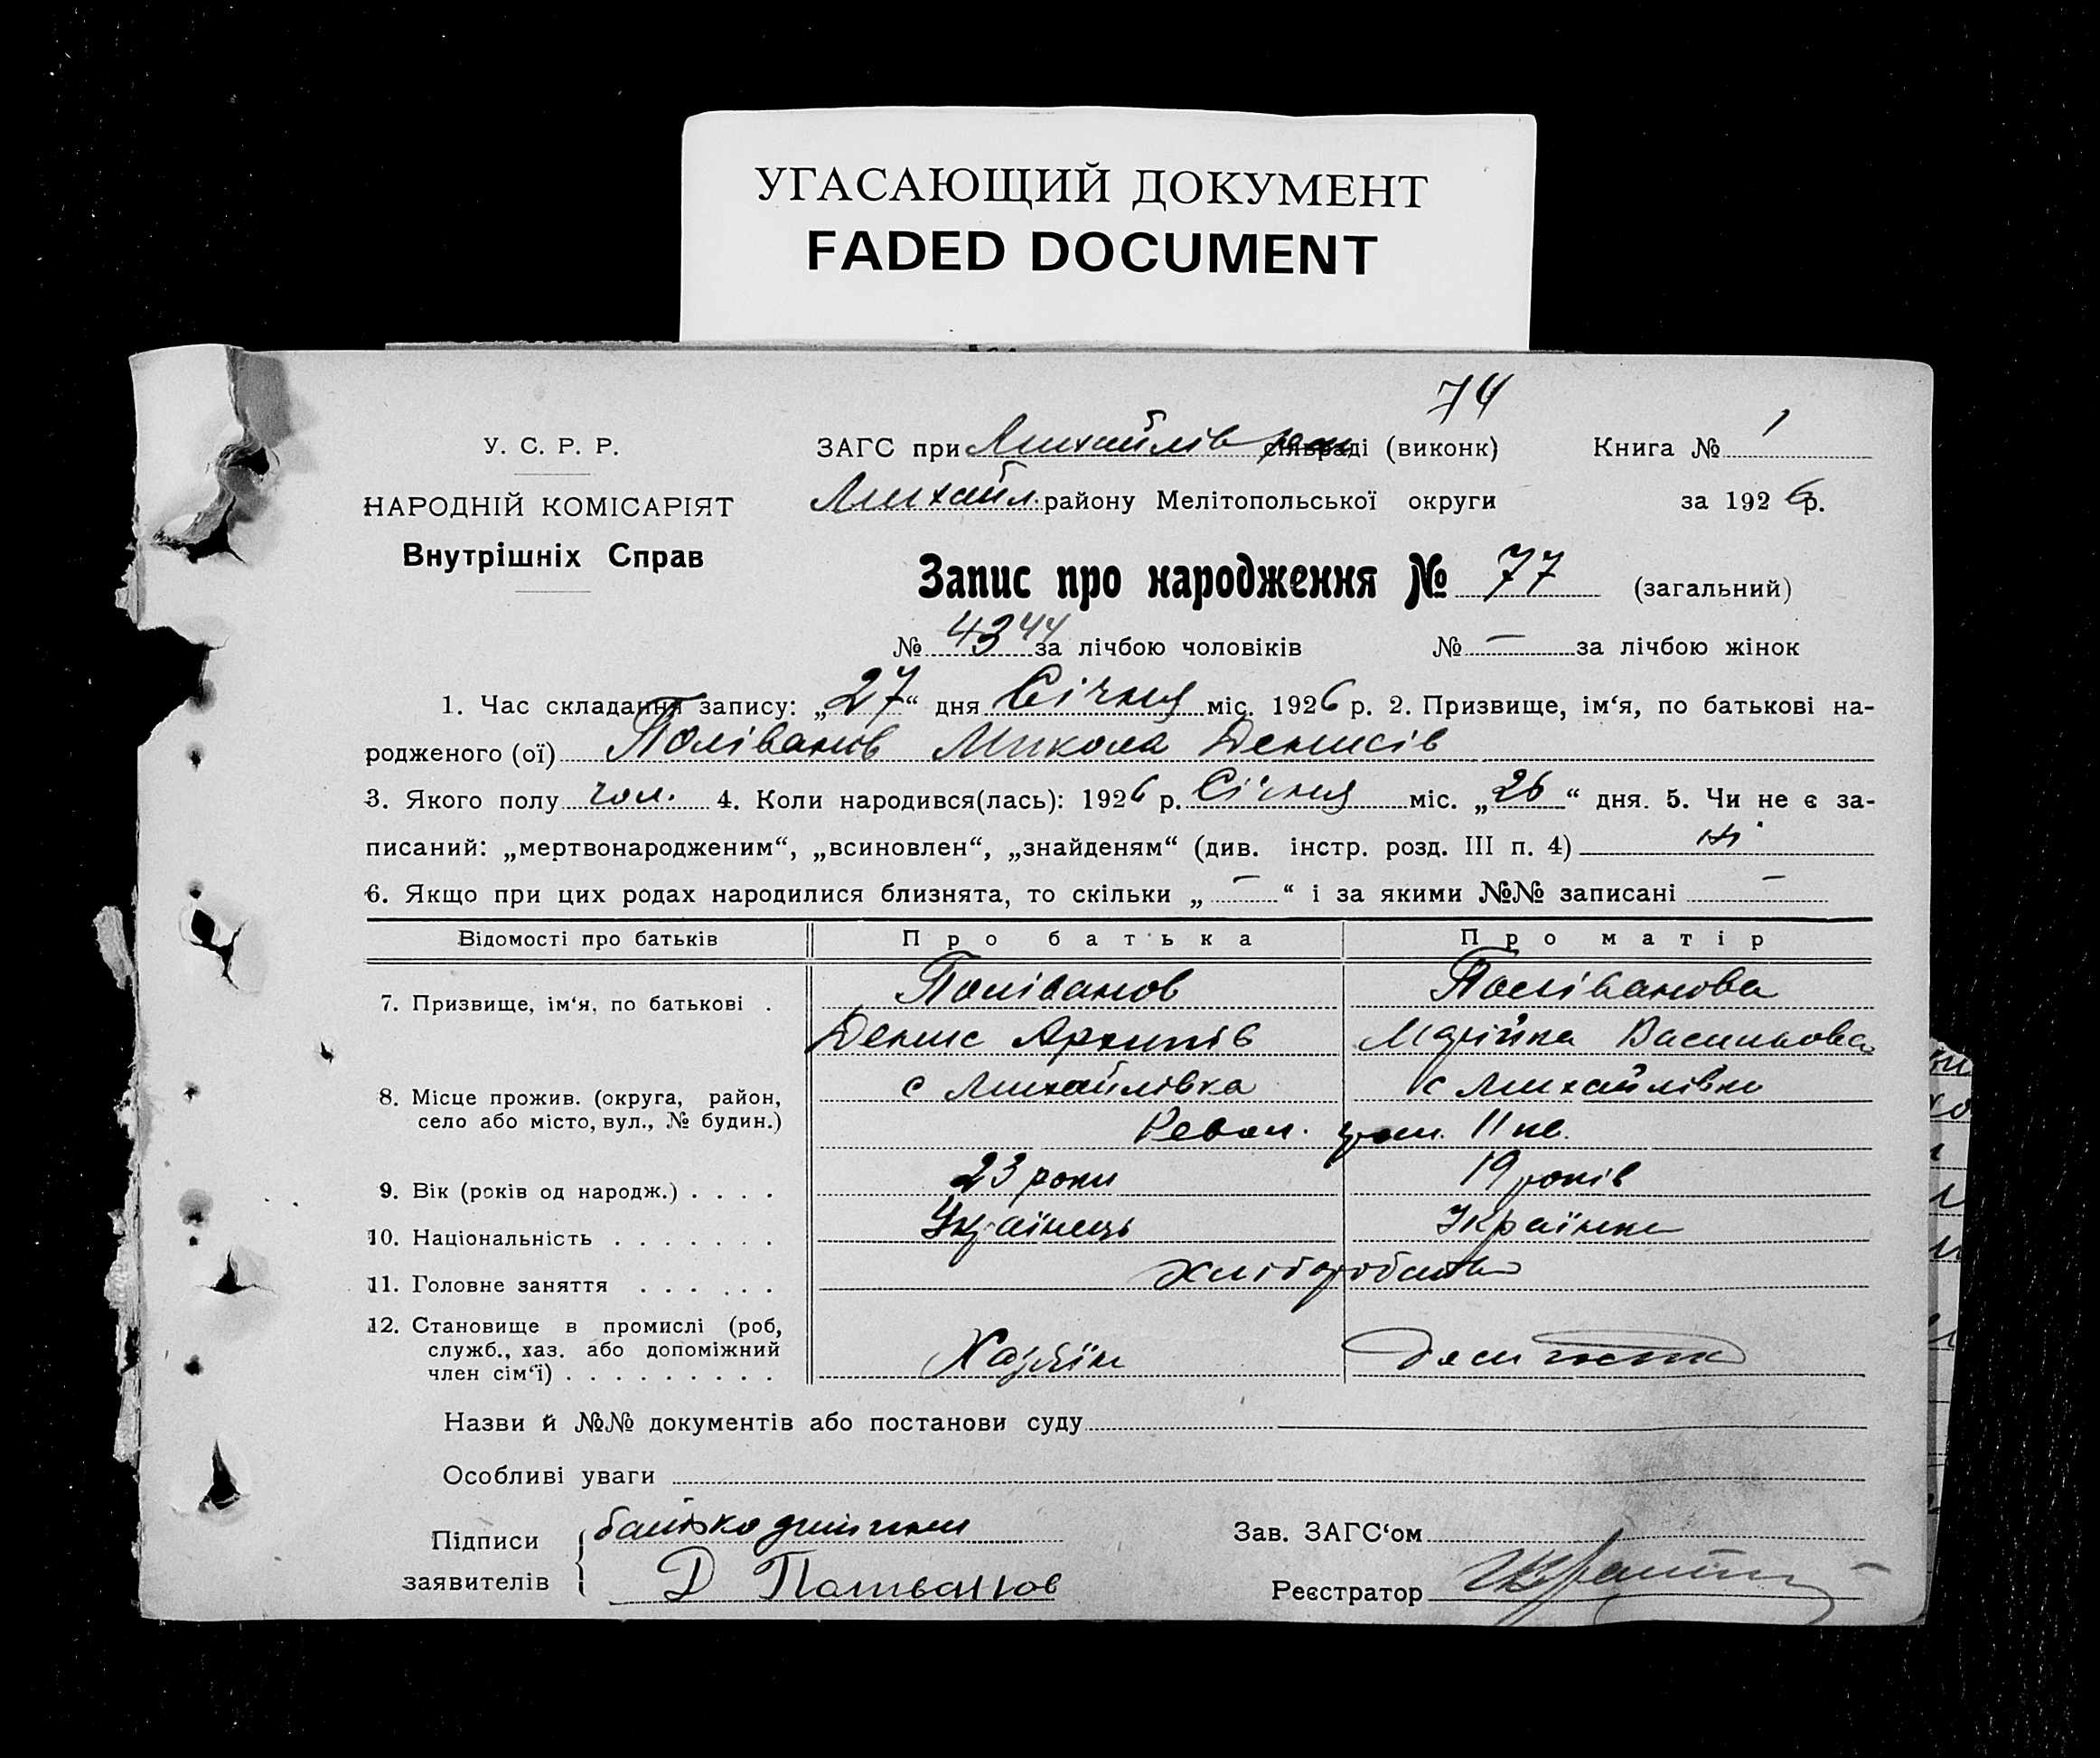 УГАСАЮЩИЙ ДОКУМЕНТ
FADED DOCUMENT
74
У. С. Р. Р.
ЗАГС при Михайлів сільраді (виконк) Книга № 1
НАРОДНІЙ КОМІСАРІЯТ
Михайл. району Мелітопольської округи за 1926 р.
Внутрішніх Справ
Запис про народження № 77 (загальний)
№ 43 44 за лічбою чоловіків № — за лічбою жінок
1. Час складання запису: „27“ дня Січня міс. 1926 р. 2. Призвище, ім‘я, по батькові на-
родженого (ої) Поліванов Микола Денисів
3. Якого полу чол. 4. Коли народився(лась): 1926 р. Січня міс. „26“ дня. 5. Чи не є за-
писаний: „мертвонародженим“, „всиновлен“, „знайденям“ (див. інстр. розд. III п. 4) ні
6. Якщо при цих родах народилися близнята, то скільки „—“ і за якими №№ записані —
Відомості про батьків Про батька Про матір
7. Призвище, ім‘я, по батькові . Поліванов Поліванова
Денис Архипів Марійка Васильова
8. Місце прожив. (округа, район, с Михайлівка с Михайлівка
село або місто, вул., № будин.) Револ. 11 кв.
9. Вік (років од народж.) . . . . 23 роки 19 років
10. Національність . . . . . . . Українець Українка
11. Головне заняття . . . . . . хліборобство
12. Становище в промислі (роб,
служб., хаз. або допоміжний
член сім‘ї) . . . . . . . . . Хазяїн
Назви й №№ документів або постанови суду
Особливі уваги
Підписи батько дитини Зав. ЗАГС‘ом
заявителів Д Поливанов Реєстратор